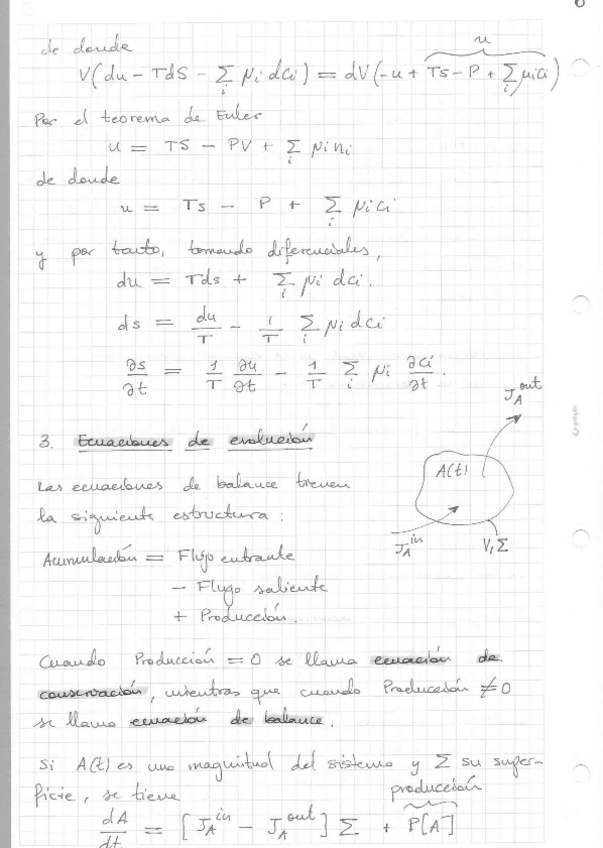 de donde
u
V(du - TdS - Σ_i μi dci) = dV(-u + Ts - P + Σ_i μici)
Por el teorema de Euler
u = TS - PV + Σ_i μini
de donde
u = Ts - P + Σ_i μici
y por tanto, tomando diferenciales,
du = Tds + Σ_i μi dci.
ds = du/T - 1/T Σ_i μi dci
∂s/∂t = 1/T ∂u/∂t - 1/T Σ_i μi ∂ci/∂t.
J_A^out
3. Ecuaciones de evolución
A(t)
Las ecuaciones de balance tienen
la siguiente estructura:
J_A^in
V, Σ
Acumulación = Flujo entrante
- Flujo saliente
+ Producción.
Cuando Producción = 0 se llama ecuación de
conservación, mientras que cuando Producción ≠ 0
se llama ecuación de balance.
Si A(t) es una magnitud del sistema y Σ su super-
ficie, se tiene
producción
dA/dt = [J_A^in - J_A^out] Σ + P[A]